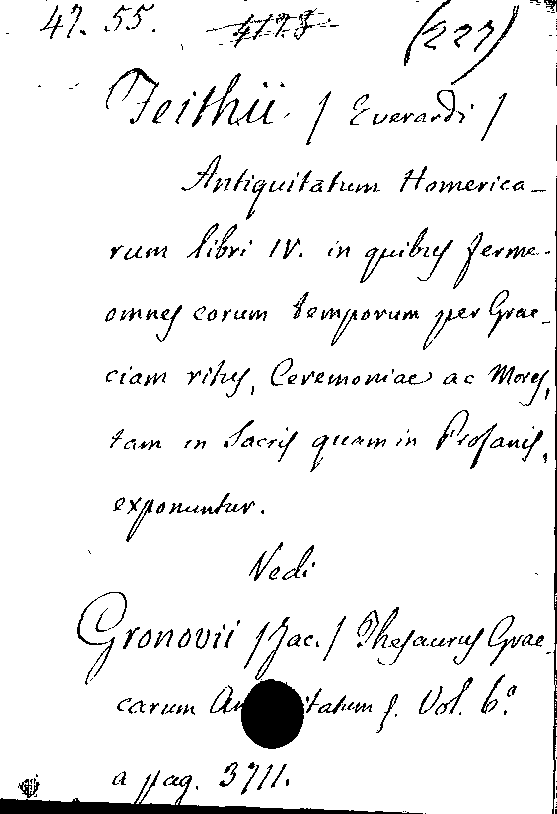 47. 55. 4178. (227)
Feithii. / Everardi /
Antiquitatum Homerica-
rum libri IV. in quibus ferme
omnes eorum temporum per Grae-
ciam ritus, Ceremoniae ac Mores,
tam in Sacris quam in Profanis,
exponuntur.
Vedi
Gronovii /Jac./ Thesaurus Grae-
carum An itatum f. Vol. 6.º
a pag. 3711.